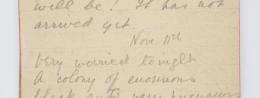 will be! It has not
arrived yet.
Nov. 11th
Very worried tonight
A colony of enormous
black ants, very